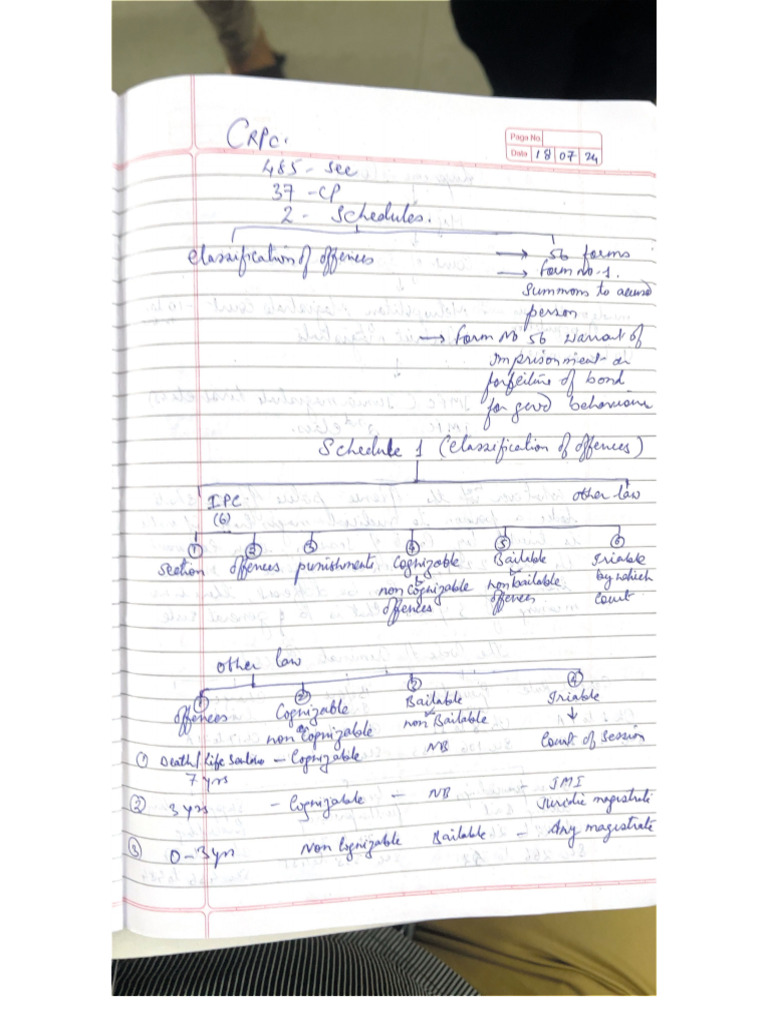 CRPC.
Page No
Date 18 07 24
485 - sec
37 - CP
2 - Schedules.
Classification of offences
→ 56 forms
→ form No. 1.
Summons to accused
person
→ form No 56 warrant of
imprisonment on
forfeiture of bond
for good behaviour
Schedule 1 (Classification of offences)
IPC other law
(6)
① ② ③ ④ ⑤ ⑥
Section offences punishments Cognizable Bailable triable
non Cognizable non bailable by which
offences offences court
other law
① ② ③ ④
offences Cognizable Bailable triable
non Cognizable non Bailable ↓
① Death/life - Cognizable NB Court of session
7 yrs
② 3 yrs - Cognizable - NB JMI
Juridic magistrate
③ 0-3yr Non Cognizable Bailable - Any magistrate